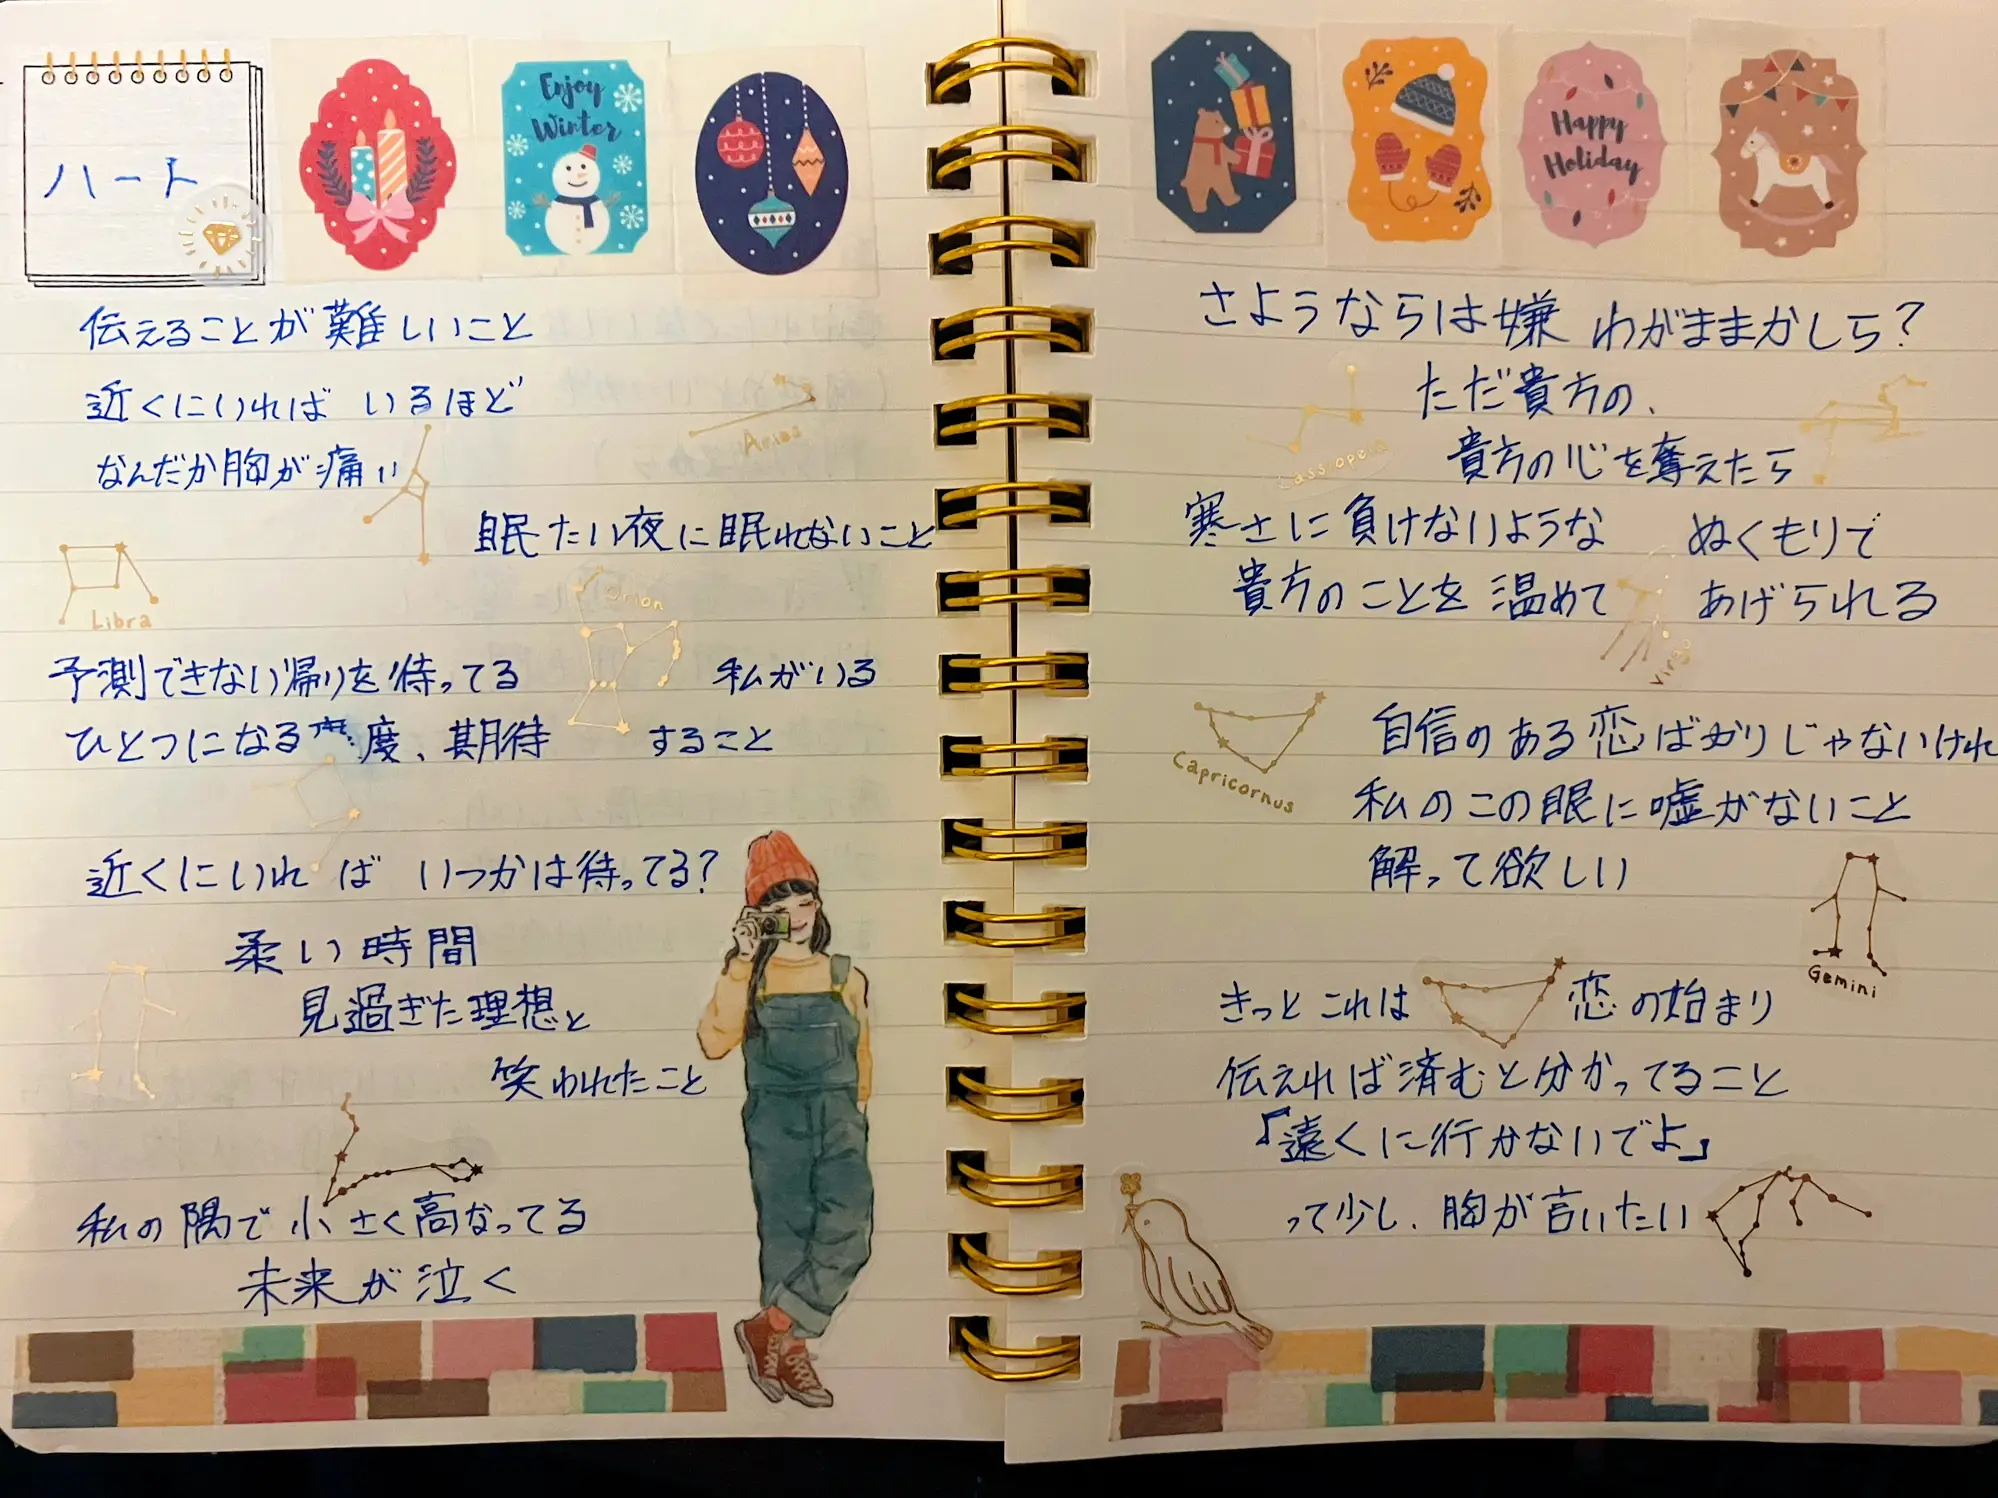 ハート
Enjoy
Winter
伝えることが難しいこと
近くにいれば いるほど
なんだか胸が痛い
Aries
眠たい夜に眠れないこと
Libra
Orion
予測できない帰りを待ってる 私がいる
ひとつになる 度、期待 すること
近くにいれば いつかは待ってる?
柔い時間
見過ぎた理想と
笑われたこと
私の隅で小さく高なってる
未来が泣く
Happy
Holiday
さようならは嫌 わがままかしら?
ただ貴方の、
Cassiopeia
貴方の心を奪えたら
寒さに負けないような ぬくもりで
貴方のことを温めて あげられる
Virgo
Capricornus
自信のある恋ばかりじゃないけれ
私のこの眼に嘘がないこと
解って欲しい
Gemini
きっとこれは 恋の始まり
伝えれば済むと分かってること
『遠くに行かないでよ』
って少し、胸が言いたい